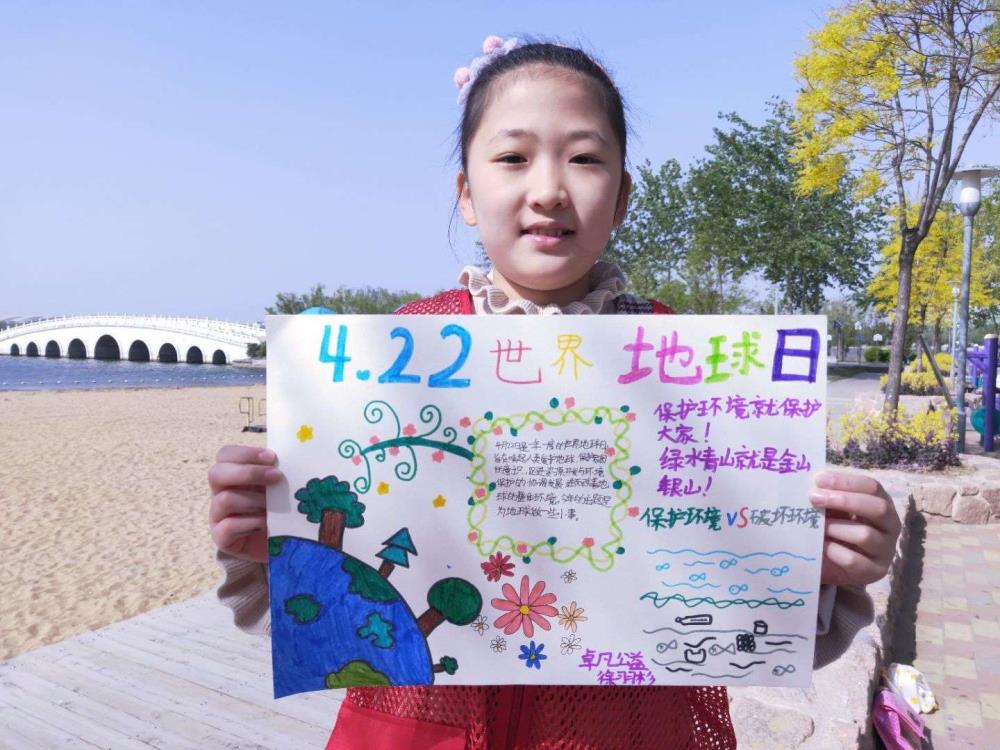 4.22 世界地球日
4月22日是一年一度的世界地球日,
旨在唤起人类爱护地球、保护家园
的意识,促进资源开发与环境
保护的协调发展,进而改善地
球的整体环境。今年的主题是
为地球做一些小事。
保护环境就保护
大家!
绿水青山就是金山
银山!
保护环境 VS 破坏环境
卓凡公益
徐羽彬